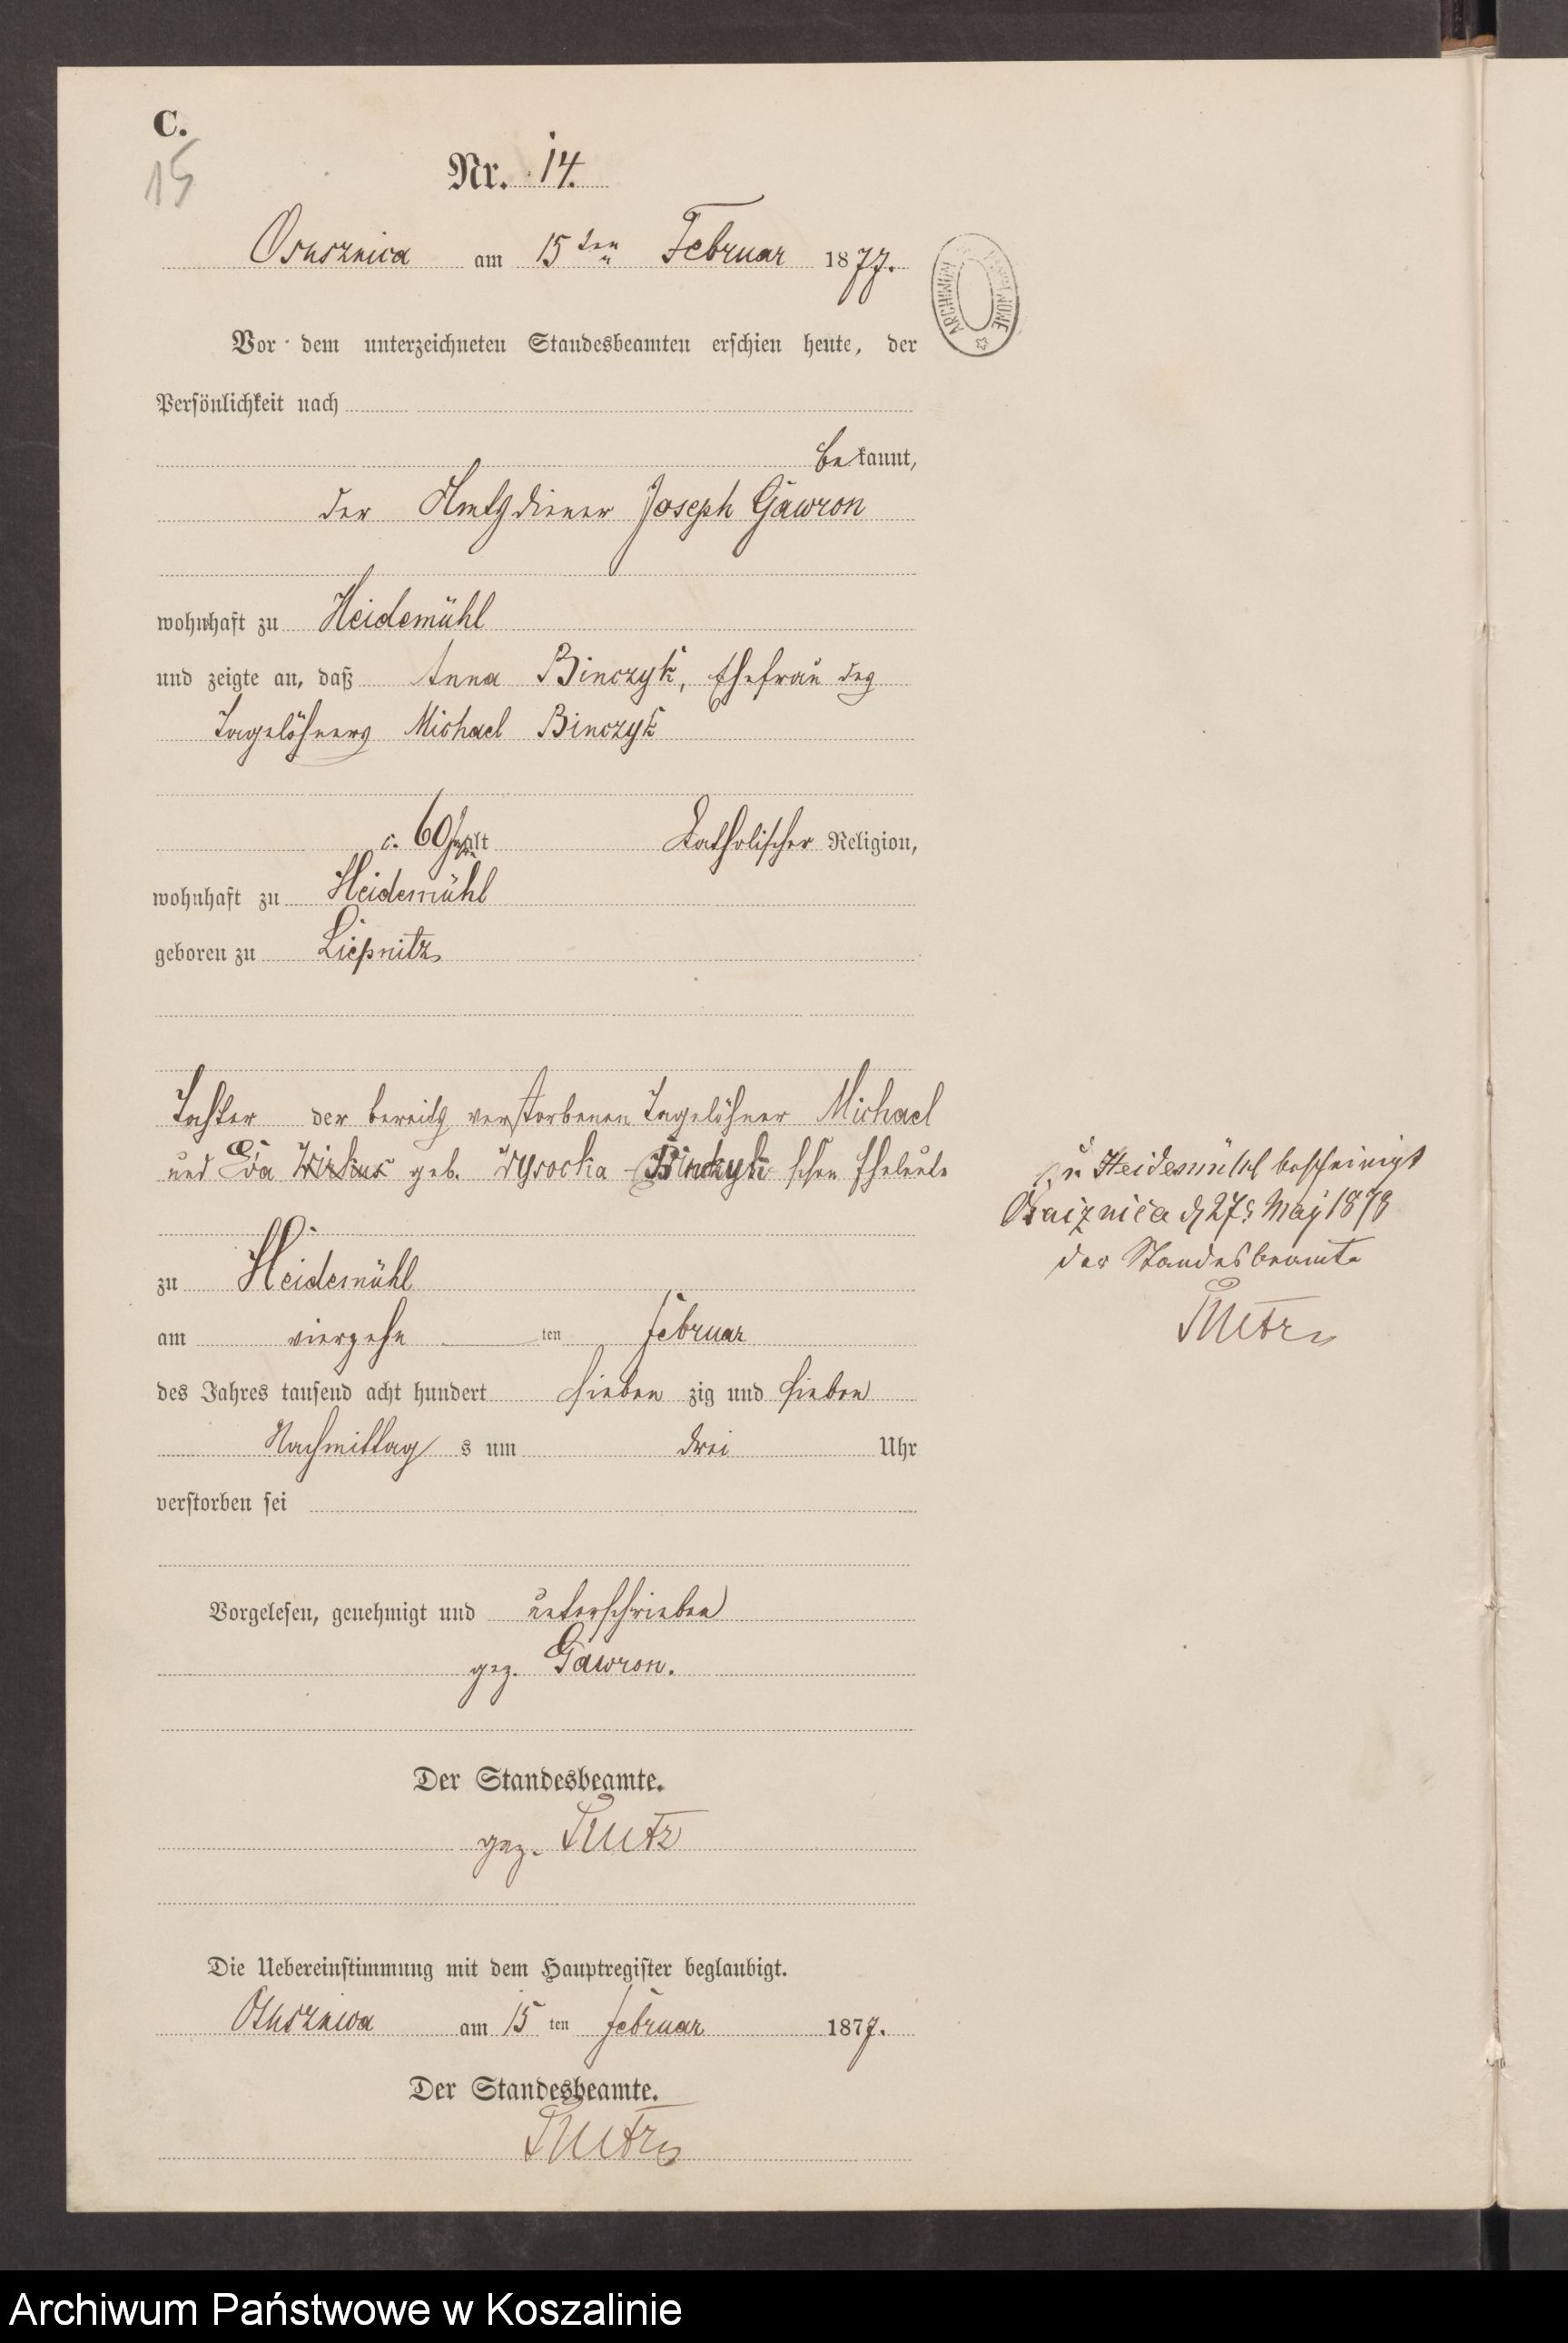 C.
15
Nr. 14.
Osusznica am 15ten Februar 1877.
ARCHIWUM
Vor dem unterzeichneten Standesbeamten erschien heute, der
Persönlichkeit nach
bekannt,
der Amtsdiener Joseph Gawron
wohnhaft zu Heidemühl
und zeigte an, daß Anna Binczyk, Ehefrau des
Tagelöhners Michael Binczyk
c. 60 Jahr alt Katholischer Religion,
wohnhaft zu Heidemühl
geboren zu Liepnitz
Tochter der bereits verstorbenen Tagelöhner Michael
und Eva geb. Wysocka Binczyk schen Eheleute
zu Heidemühl
am vierzehn ten Februar
des Jahres tausend acht hundert sieben zig und sieben
Nachmittag s um drei Uhr
verstorben sei
zu Heidemühl bescheinigt
27 May 1878
der Standesbeamte
Vorgelesen, genehmigt und unterschrieben
gez. Gawron.
Der Standesbeamte.
gez.
Die Uebereinstimmung mit dem Hauptregister beglaubigt.
Osusznica am 15 ten Februar 1877.
Der Standesbeamte.
Archiwum Państwowe w Koszalinie